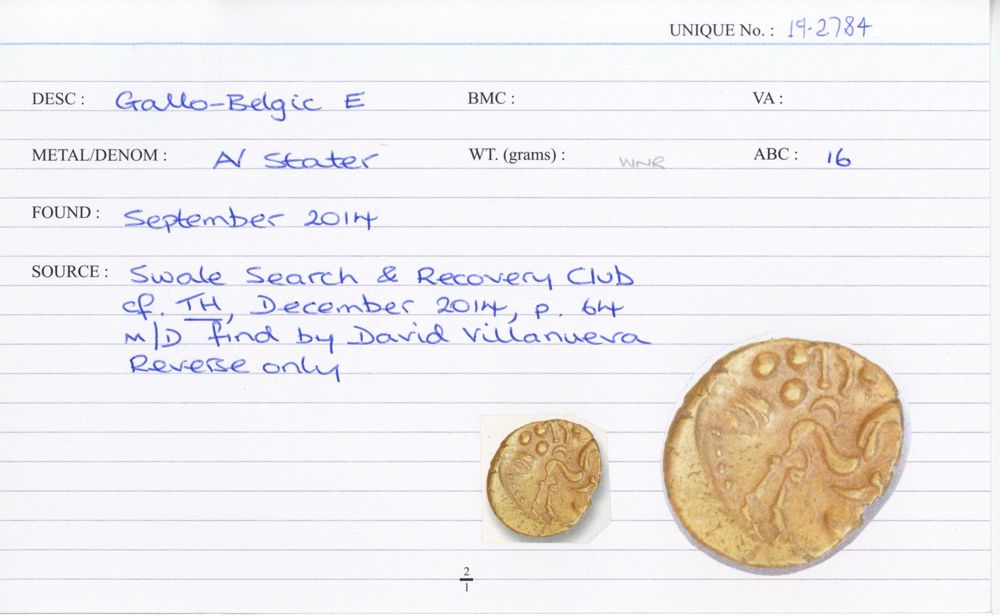 UNIQUE No. : 19-2784
DESC : Gallo-Belgic E BMC : VA :
METAL/DENOM : A/ Stater WT. (grams) : WNR ABC : 16
FOUND : September 2014
SOURCE : Swale Search & Recovery Club
cf. TH, December 2014, p. 64
M/D find by David Villanueva
Reverse only
2
1